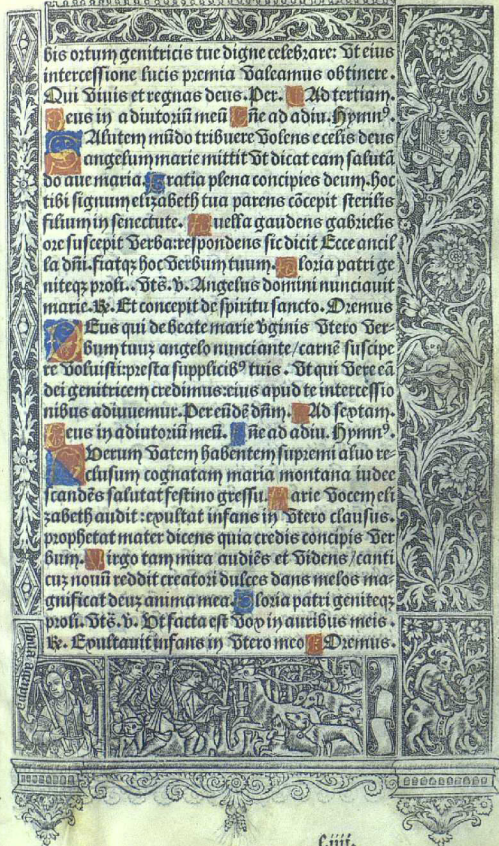 bis ortum genitricis tue digne celebrare: Vt eius
intercessione lucis premia Valeamus obtinere.
Qui Viuis et regnas deus. Per. Ad tertiam.
Deus in adiutoriū meū Dñe ad adiu. Hymnꝰ.
SAlutem mūdo tribuere Volens e celis deus
angelum marie mittit Vt dicat eam salutā
do aue maria. Gratia plena concipies deum. hoc
tibi signum elizabeth tua parens cōcepit sterilis
filium in senectute. Puella gaudens gabrielis
ore suscepit Verba: respondens sic dicit Ecce ancil
la dñi. fiatqꝫ hoc Verbum tuum. Gloria patri ge
niteqꝫ proli.. Vts̄. v. Angelus domini nunciauit
marie. ꝶ. Et concepit de spiritu sancto. Oremus
DEus qui de beate marie vginis Vtero Ver-
bum tuuꝫ angelo nunciante/carnē suscipe
re Voluisti: presta supplicibꝰ tuis. Vt qui Vere eā
dei genitricem credimus: eius apud te intercessio
nibus adiuuemur. Per eūdē dñm. Ad sextam.
Deus in adiutoriū meū. Dñe ad adiu. Hymnꝰ.
Verum Vatem habentem supremi aluo re-
clusum cognatam maria montana iudee
scandēs salutat festino gressu. Marie Vocem eli
zabeth audit: exultat infans in Vtero clausus.
prophetat mater dicens quia credis concipis Ver
bum. Virgo tam mira audiēs et Videns/canti
cuꝫ nouū reddit creatori dulces dans melos ma-
gnificat deuꝫ anima mea. Gloria patri geniteqꝫ
proli. Vts̄. v. Vt facta est Vox in auribus meis.
ꝶ. Exultauit infans in Vtero meo Oremus.